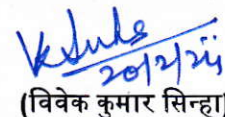 20/2/24
(विवेक कुमार सिन्हा)